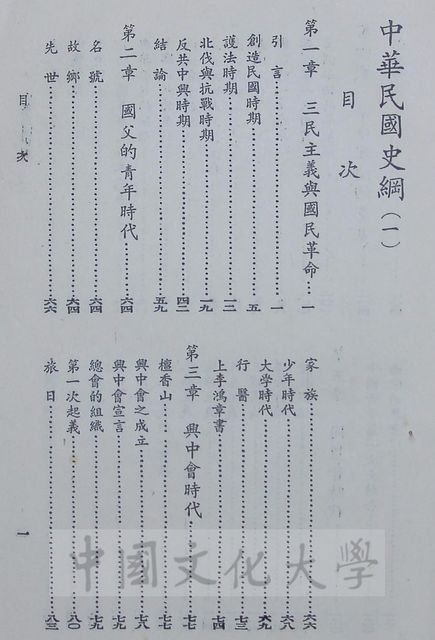 中華民國史綱（一）
目次
第一章　三民主義與國民革命……一
引言……一
創造民國時期……五
護法時期……一二
北伐與抗戰時期……一九
反共中興時期……四二
結論……五九
第二章　國父的青年時代……六四
名號……六四
故鄉……六四
先世……六六
家族……六六
少年時代……六八
大學時代……六九
行醫……七三
上李鴻章書……七四
第三章　興中會時代……七七
檀香山……七七
興中會之成立……七八
興中會宣言……七九
總會的組織……七九
第一次起義……八〇
旅日……八三
目次
一
中國文化大學